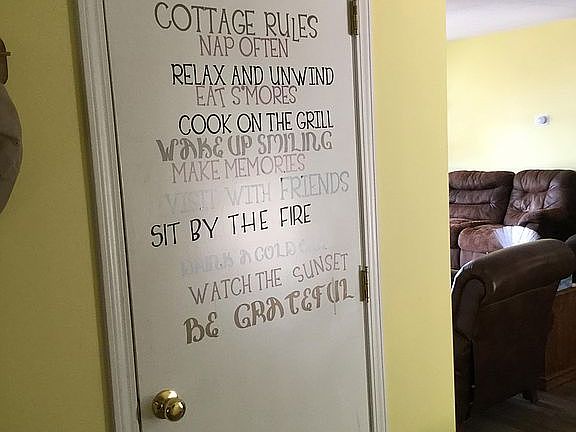 COTTAGE RULES
NAP OFTEN
RELAX AND UNWIND
EAT S'MORES
COOK ON THE GRILL
WAKE UP SMILING
MAKE MEMORIES
VISIT WITH FRIENDS
SIT BY THE FIRE
DRINK A COLD ONE
WATCH THE SUNSET
BE GRATEFUL